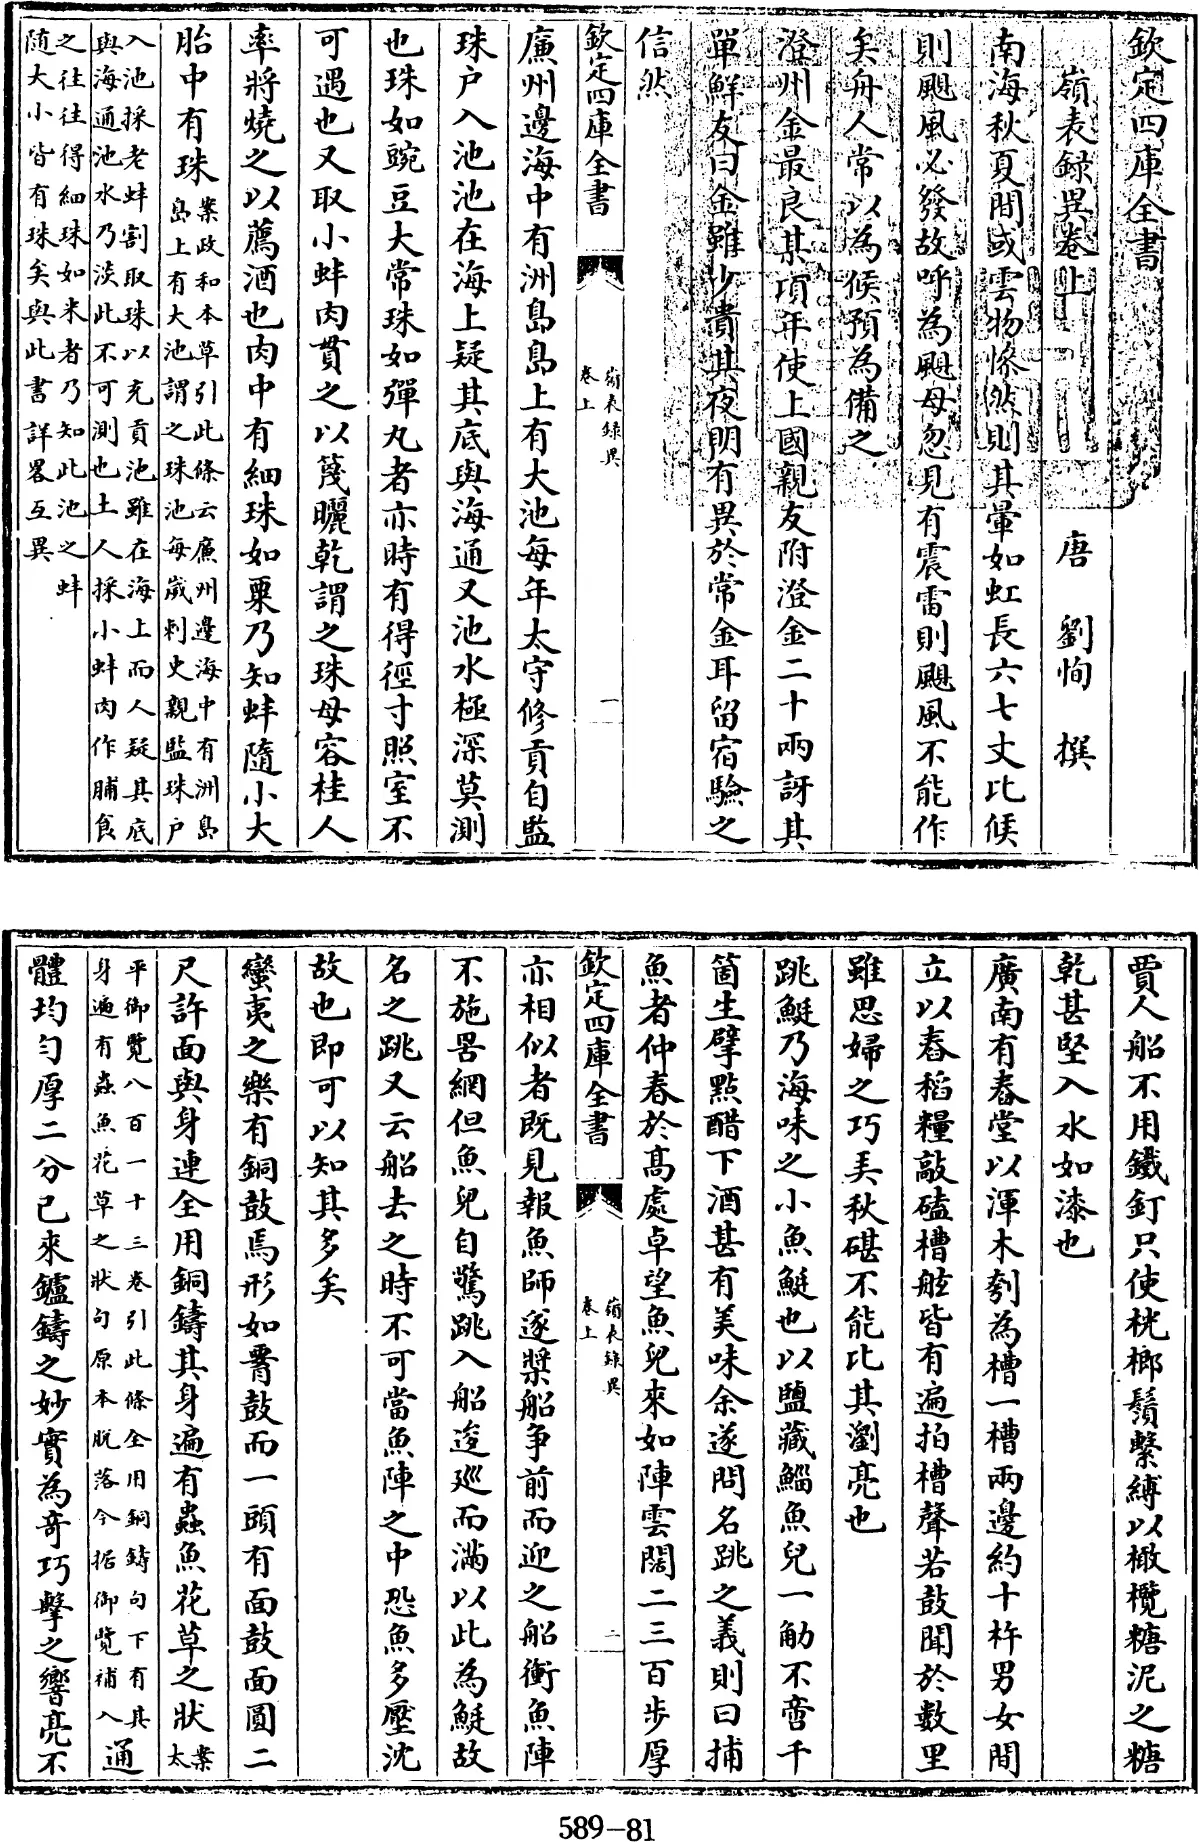 欽定四庫全書
嶺表録異卷上
唐 劉恂 撰
南海秋夏間或雲物慘然則其暈如虹長六七丈比候
則颶風必發故呼為颶母忽見有震雷則颶風不能作
矣舟人常以為候預為備之
澄州金最良某頃年使上國親友附澄金二十兩訝其
單鮮友曰金雖少貴其夜明有異於常金耳留宿驗之
信然
欽定四庫全書
嶺表錄異
卷上
一
廉州邊海中有洲島島上有大池每年太守修貢自監
珠户入池池在海上疑其底與海通又池水極深莫測
也珠如豌豆大常珠如彈丸者亦時有得徑寸照室不
可遇也又取小蚌肉貫之以篾曬乾謂之珠母容桂人
率將燒之以薦酒也肉中有細珠如粟乃知蚌隨小大
胎中有珠
案政和本草引此條云廉州邊海中有洲島
島上有大池謂之珠池每歲刺史親監珠户
入池採老蚌割取珠以充貢池雖在海上而人疑其底
與海通池水乃淡此不可測也土人採小蚌肉作脯食
之往往得細珠如米者乃知此池之蚌
随大小皆有珠矣與此書詳畧互異
賈人船不用鐵釘只使桄榔鬚繫縛以橄欖糖泥之糖
乾甚堅入水如漆也
廣南有舂堂以渾木刳為槽一槽兩邊約十杵男女間
立以舂稻糧敲磕槽舷皆有遍拍槽聲若鼓聞於數里
雖思婦之巧弄秋碪不能比其瀏亮也
跳䱓乃海味之小魚䱓也以鹽藏鯔魚兒一觔不啻千
箇生擘點醋下酒甚有美味余遂問名跳之義則曰捕
魚者仲春於高處卓望魚兒來如陣雲闊二三百步厚
欽定四庫全書
嶺表錄異
卷上
二
亦相似者既見報魚師遂槳船爭前而迎之船衝魚陣
不施罟網但魚兒自驚跳入船逡廵而滿以此為䱓故
名之跳又云船去之時不可當魚陣之中恐魚多壓沈
故也即可以知其多矣
蠻夷之樂有銅鼓焉形如腰鼓而一頭有面鼓面圓二
尺許面與身連全用銅鑄其身遍有蟲魚花草之狀
案太
平御覽八百一十三卷引此條全用銅鑄句下有其
身遍有蟲魚花草之狀句原本脱落今据御覽補入
通
體均勻厚二分已來鑪鑄之妙實為奇巧擊之響亮不
589-81